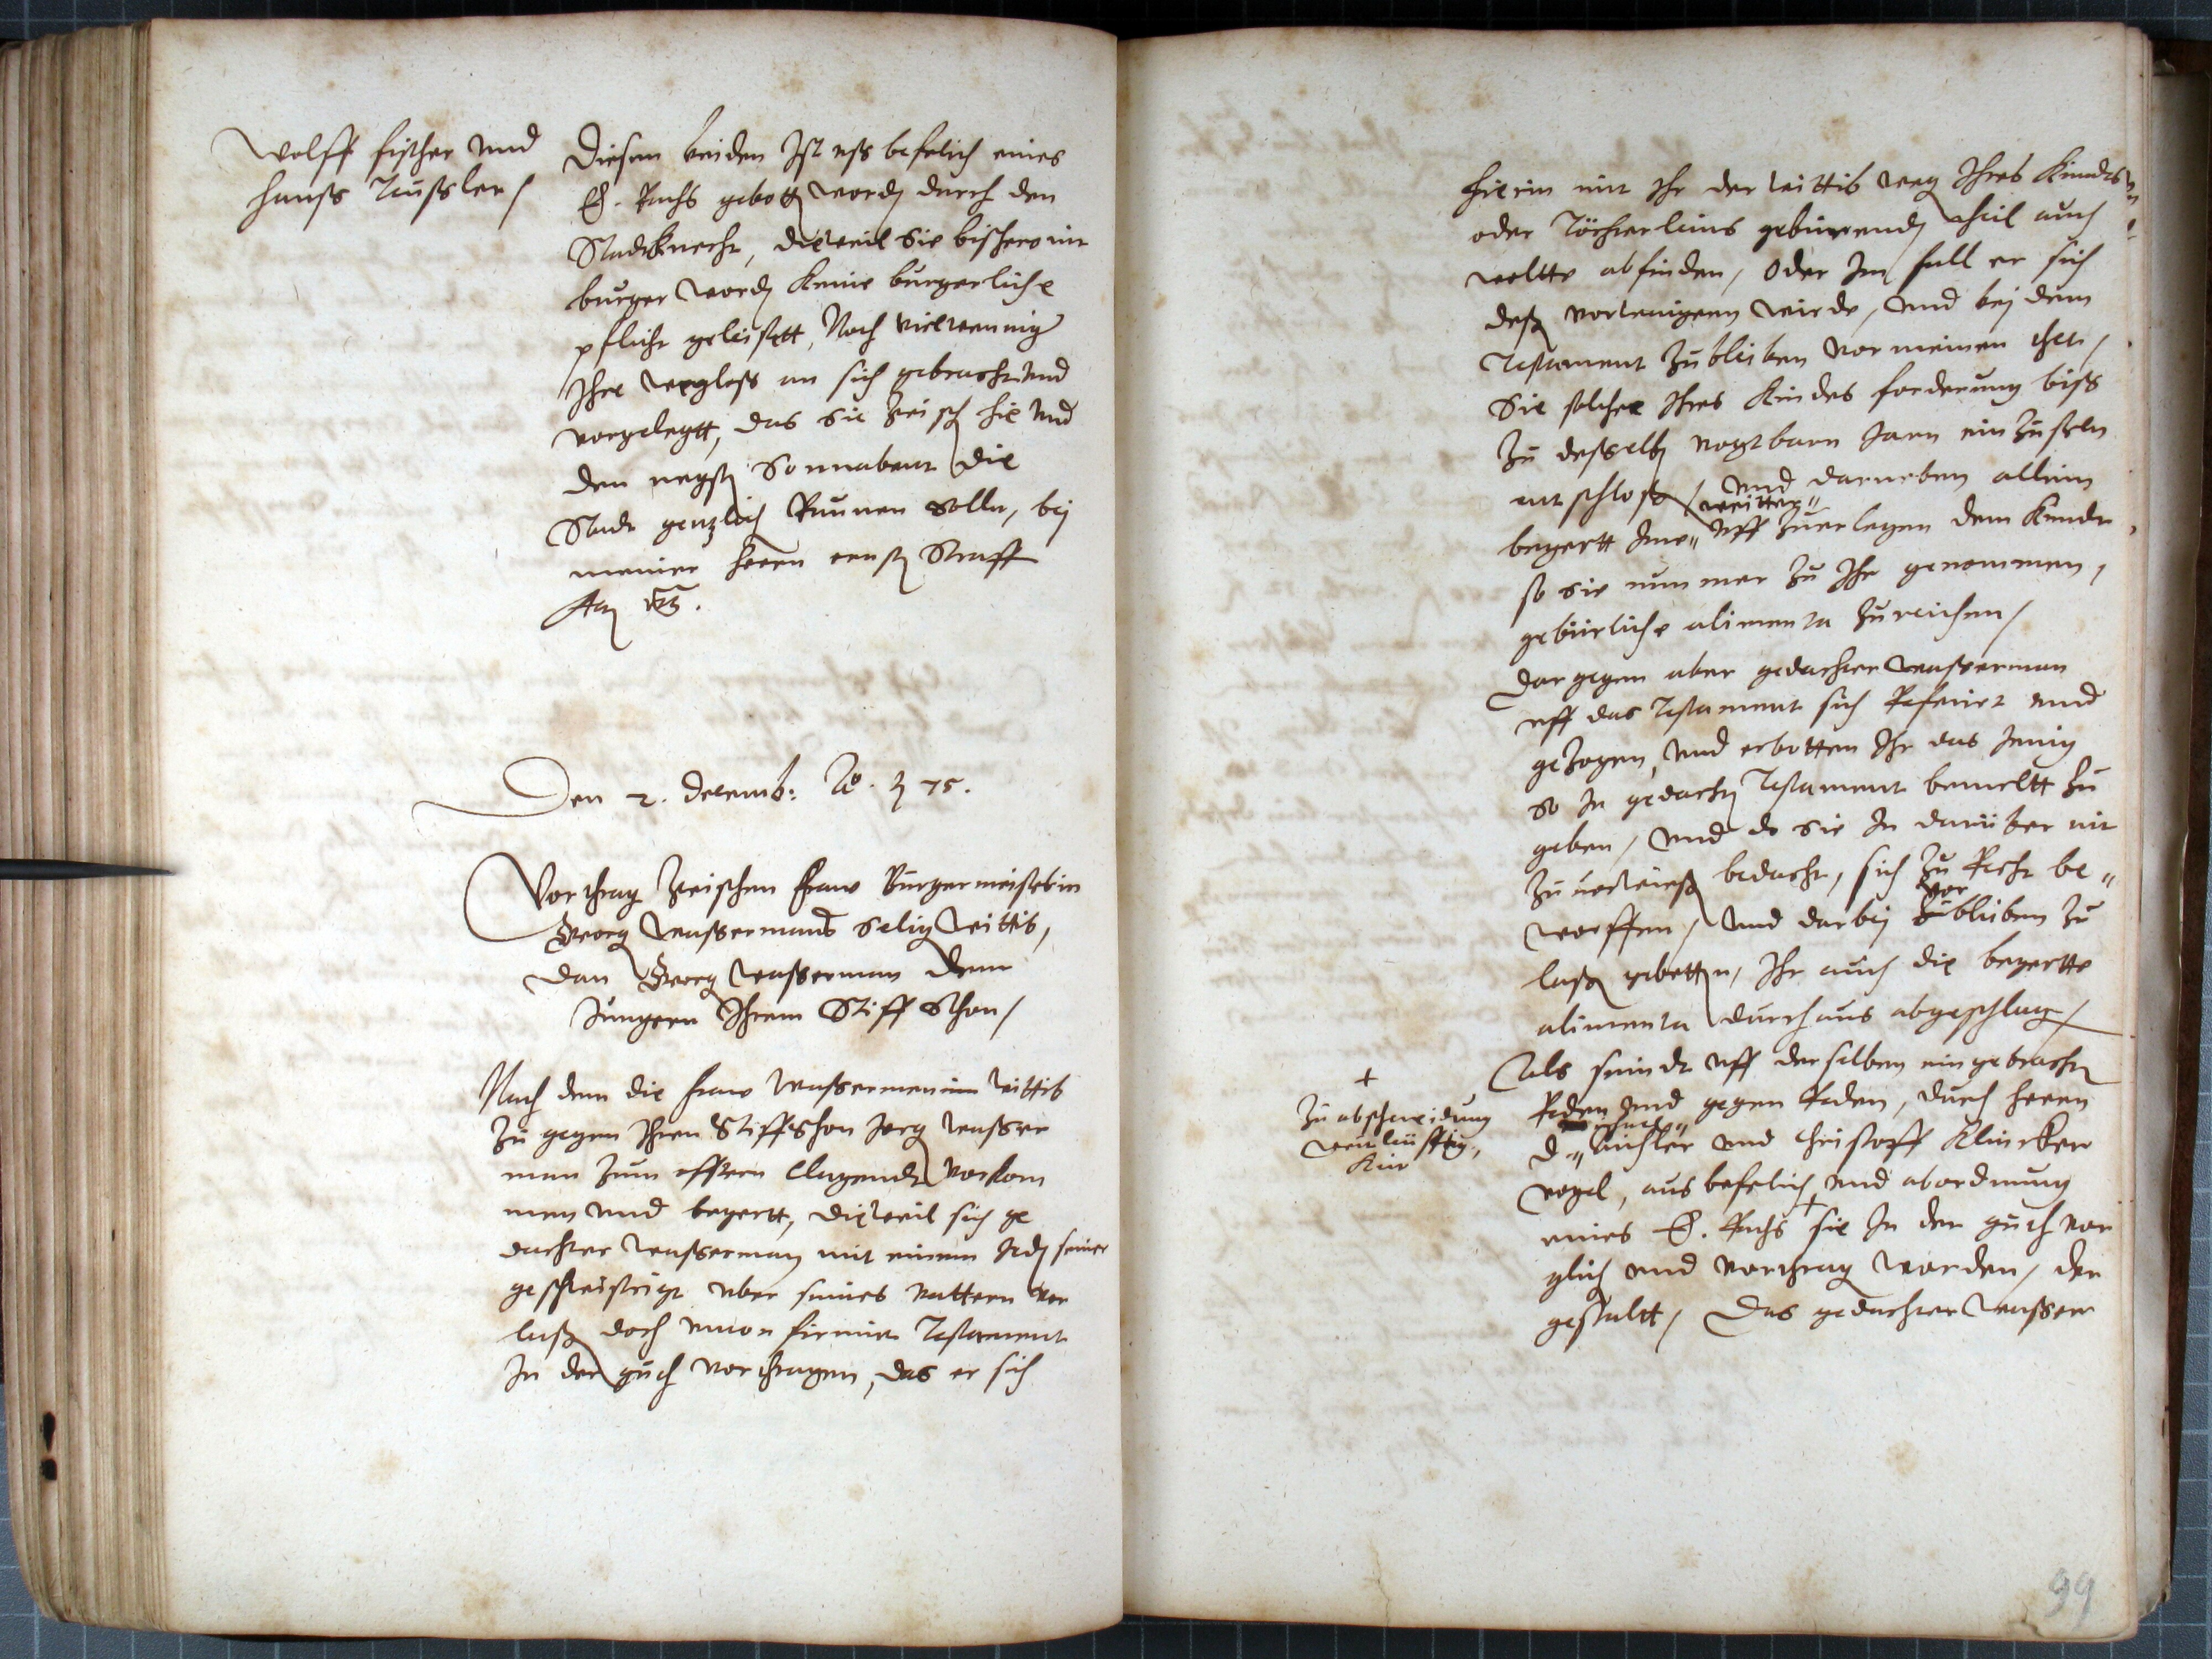 Wolff fischer vnd
Hanß Teußler /
Diesen beiden Ist vß befelich eines
E. Raths gebotten worden durch den
Stadtknecht, dieweil Sie bischero nit
burger worden keine burgerliche
pflicht geleistett, Noch vielwenniger
Ihre vorgelegtt, das Sie zwischen hie vnd
den negsten Sonnabent die
Stadt genzlich Raumen sollen, bei
meiner herrn ernsten Straff
Den 2. decemb: Ao. 75.
Vorthrag zwischen fraw Burgermeisterin
Georg Wassermans selig wittib,
dan Georg Wasserman dem
Jungern Ihrem Stiff Sohon /
Nach dem die fraw Wassermenin wittib
zu gegen Ihren Stiffsohon Jorg Wasser
man zum offtern Clagendt vorkom
men vnd begertt, dieweil sich ge
dachter Wasserman mit einem Jeden seiner
geschwistrigt vber seines vattern vor
lassen doch Testament
In der guth vorthragen, das er sich
hierin mit Ihr der wittib wegen Ihres Kindts
oder Töchterleins geburenden theil auch
woltte abfinden, Oder Im fall er sich
dessen vorweigern wirde, vnd bei dem
Testament zubleiben vormeinen thet,
Sie solche Ihres Kindes forderung biß
zu desselben vogtbarn Jarn einzustelln
entschlossen / vnd darneben allein
begertt Ime weitter vffzuerlegen dem Kinde
so sie nummer zu Ihr genommen,
gebürliche alimenta zureichen /
Dargegen aber gedachter Wasserman
vff das Testament sich Referirt vnd
gezogen, vnd erbotten Ihr das Jenig
So In gedachtem Testament bemeltt zu
geben, vnd do sie In darüber nit
zuuorlassen bedacht, sich zu Recht be„
worffen, vnd darbei vor bleiben zu
lassen gebetten, Ihr auch die begertte
alimenta durchaus abgeschlagen /
Als seindt vff derselben eingebrachte
Reden vnd gegen Reden, durch herrn
D. Büchler vnd Christoff Klinckher
vogel, aus befelich vnd abordnung
eines E. Raths + sie In der guth vor
glich vnd vorthragen worden, der
gestaltt, Das gedachter Wasser
+
Zu abschneidung
weitleüfftig„
Keit
99